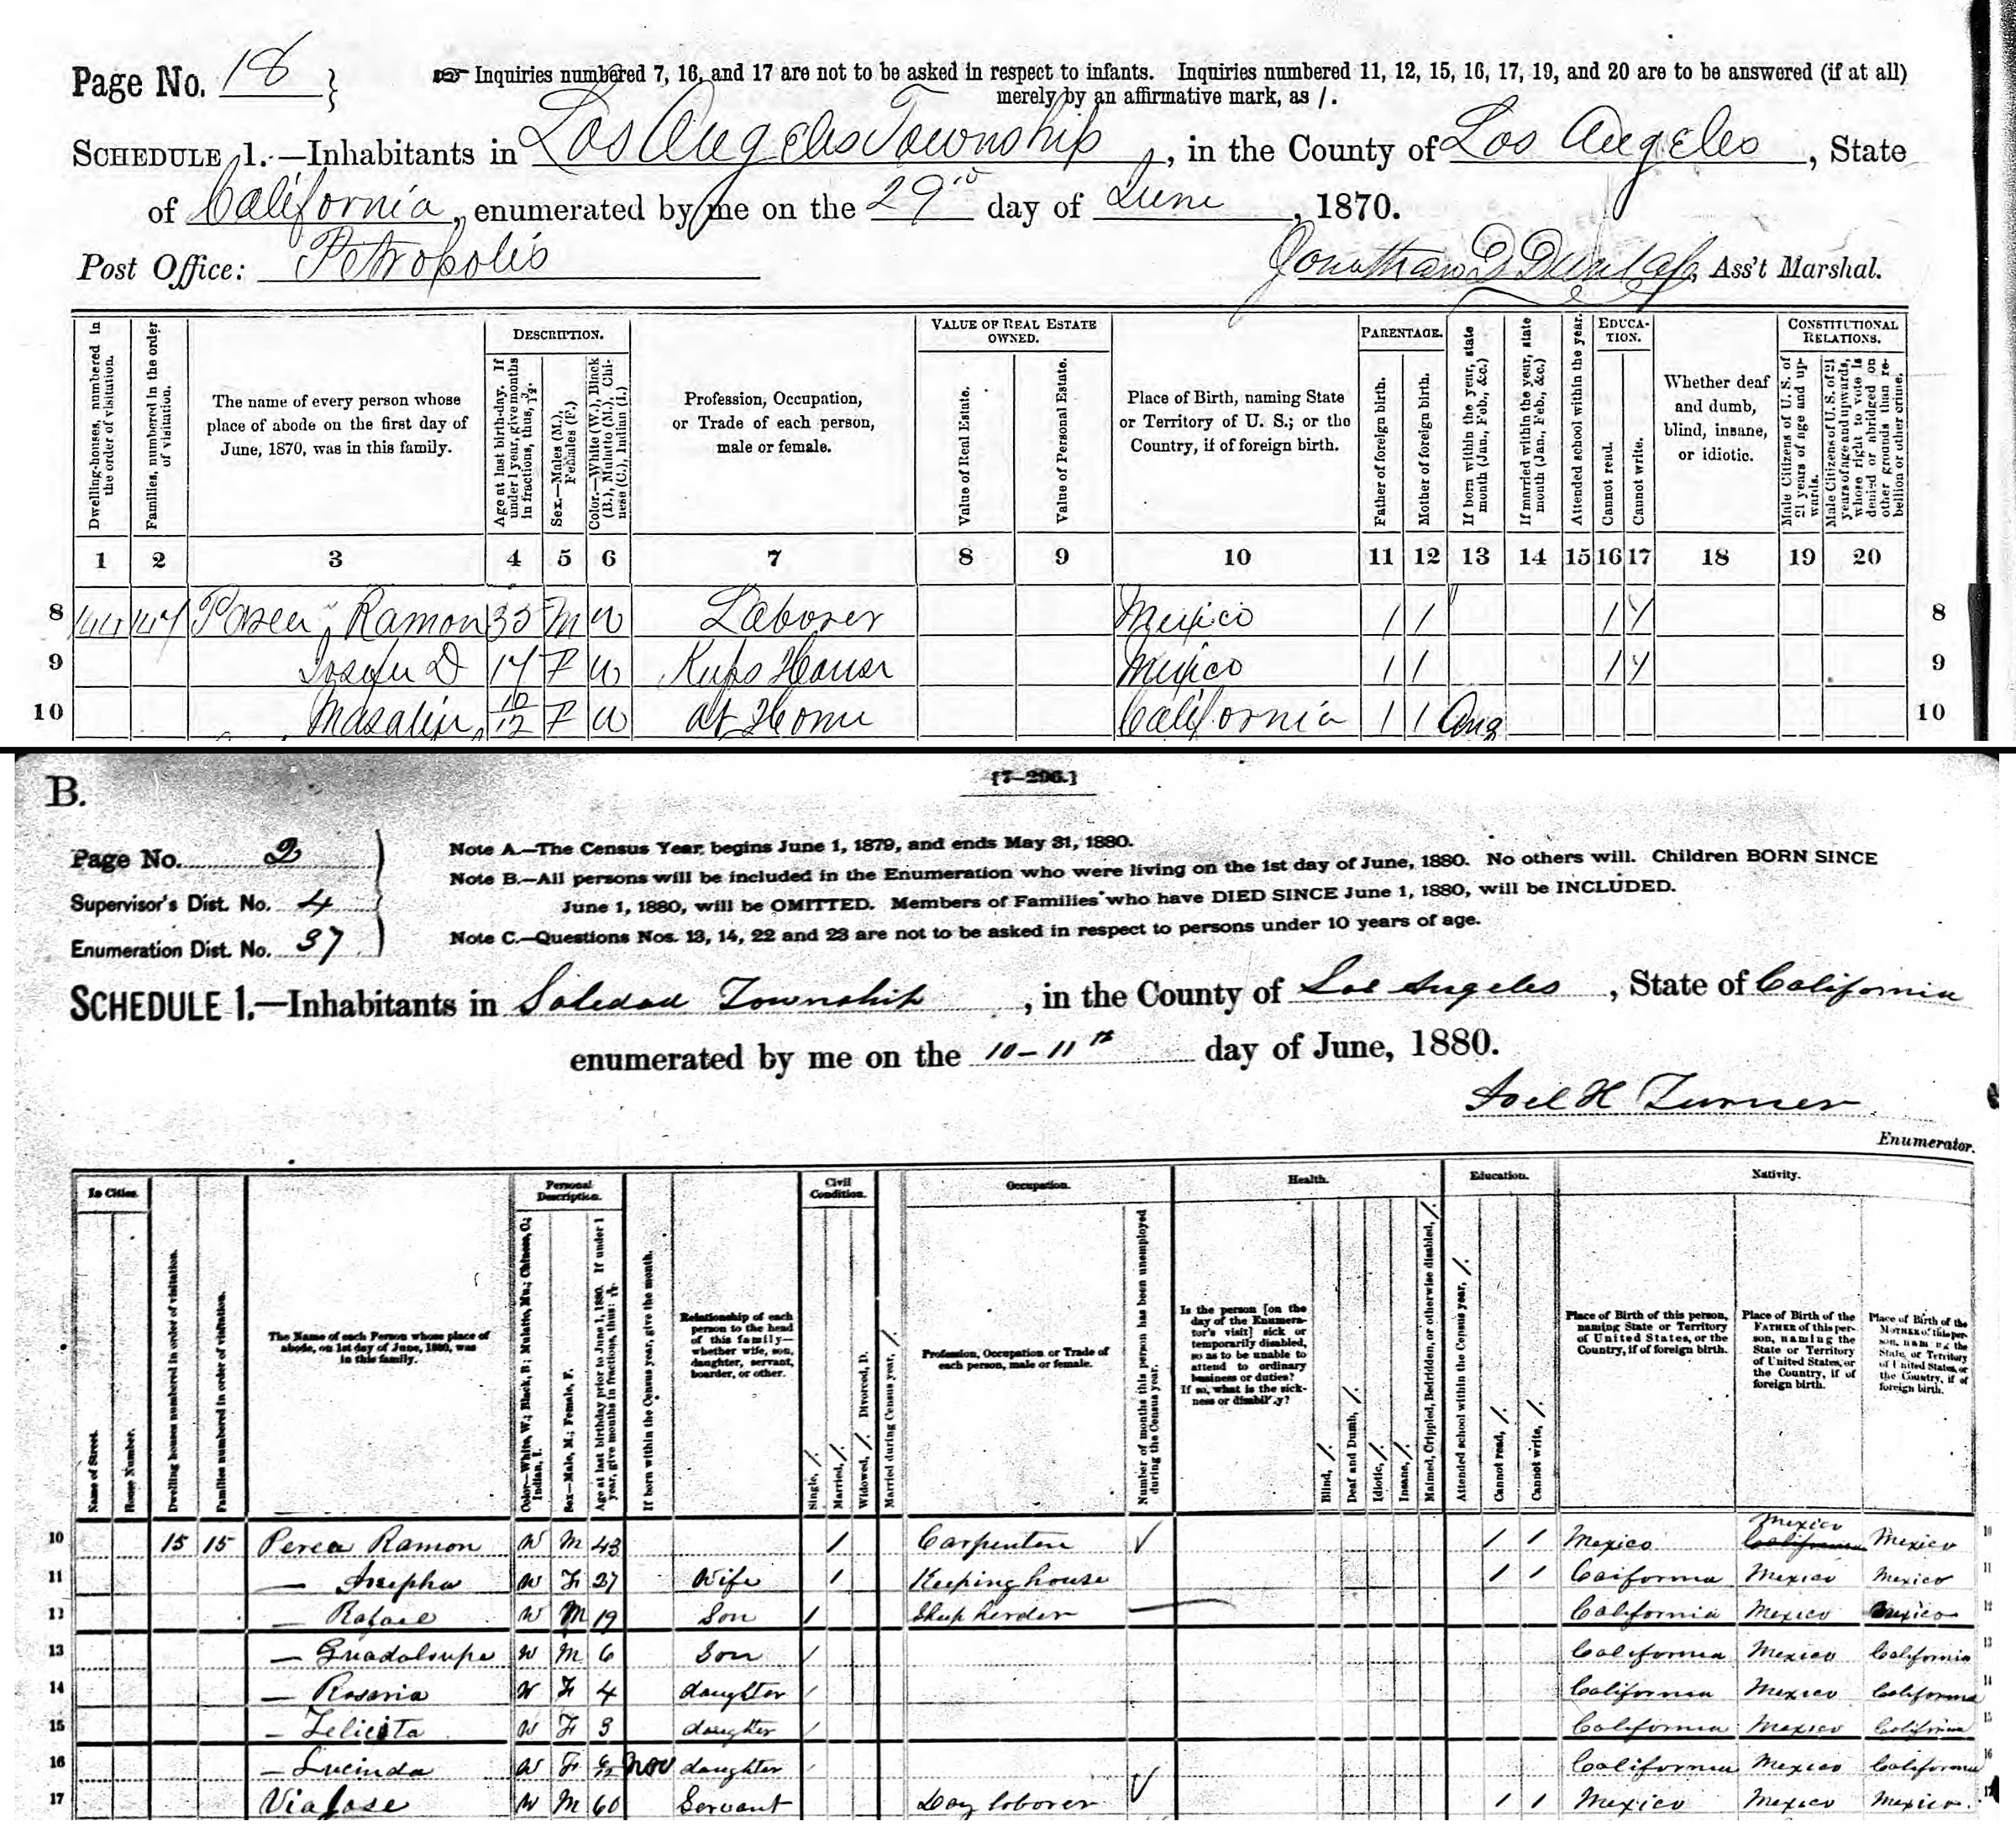 Page No. 18 }
Inquiries numbered 7, 16, and 17 are not to be asked in respect to infants. Inquiries numbered 11, 12, 15, 16, 17, 19, and 20 are to be answered (if at all)
merely by an affirmative mark, as /.
SCHEDULE 1.—Inhabitants in Los Angeles Township, in the County of Los Angeles, State
of California, enumerated by me on the 29th day of June, 1870.
Post Office: Petropolis
Jonathan D Dunlap, Ass't Marshal.
Dwelling-houses, numbered in the order of visitation.
Families, numbered in the order of visitation.
The name of every person whose place of abode on the first day of June, 1870, was in this family.
DESCRIPTION.
Age at last birth-day. If under 1 year, give months in fractions, thus, 3/12.
Sex.—Males (M.), Females (F.)
Color.—White (W.), Black (B.), Mulatto (M.), Chinese (C.), Indian (I.)
Profession, Occupation, or Trade of each person, male or female.
VALUE OF REAL ESTATE OWNED.
Value of Real Estate.
Value of Personal Estate.
Place of Birth, naming State or Territory of U. S.; or the Country, if of foreign birth.
PARENTAGE.
Father of foreign birth.
Mother of foreign birth.
If born within the year, state month (Jan., Feb., &c.)
If married within the year, state month (Jan., Feb., &c.)
Attended school within the year.
EDUCATION.
Cannot read.
Cannot write.
Whether deaf and dumb, blind, insane, or idiotic.
CONSTITUTIONAL RELATIONS.
Male Citizens of U. S. of 21 years of age and upwards.
Male Citizens of U. S. of 21 years of age and upwards, whose right to vote is denied or abridged on other grounds than rebellion or other crime.
1 2 3 4 5 6 7 8 9 10 11 12 13 14 15 16 17 18 19 20
8 Ramon M W Laborer Mexico / / / / 8
9 17 F W Keeps House Mexico / / / / 9
10 10/12 F W at Home California / / Aug 10
B.
[7-296.]
Page No. 2
Supervisor's Dist. No. 4
Enumeration Dist. No. 37
Note A.—The Census Year begins June 1, 1879, and ends May 31, 1880.
Note B.—All persons will be included in the Enumeration who were living on the 1st day of June, 1880. No others will. Children BORN SINCE
June 1, 1880, will be OMITTED. Members of Families who have DIED SINCE June 1, 1880, will be INCLUDED.
Note C.—Questions Nos. 13, 14, 22 and 23 are not to be asked in respect to persons under 10 years of age.
SCHEDULE 1.—Inhabitants in Soledad Township, in the County of Los Angeles, State of California
enumerated by me on the 10-11th day of June, 1880.
Joel H Turner
Enumerator.
In Cities.
Name of Street.
House Number.
Dwelling houses numbered in order of visitation.
Families numbered in order of visitation.
The Name of each Person whose place of abode, on 1st day of June, 1880, was in this family.
Personal Description.
Color—White, W.; Black, B.; Mulatto, Mu.; Chinese, C.; Indian, I.
Sex—Male, M.; Female, F.
Age at last birthday prior to June 1, 1880. If under 1 year, give months in fractions, thus:
If born within the Census year, give the month.
Relationship of each person to the head of this family—whether wife, son, daughter, servant, boarder, or other.
Civil Condition.
Single, /.
Married, /.
Widowed, /. Divorced, D.
Married during Census year, /.
Occupation.
Profession, Occupation or Trade of each person, male or female.
Number of months this person has been unemployed during the Census year.
Health.
Is the person [on the day of the Enumerator's visit] sick or temporarily disabled, so as to be unable to attend to ordinary business or duties? If so, what is the sickness or disability?
Blind, /.
Deaf and Dumb, /.
Idiotic, /.
Insane, /.
Maimed, Crippled, Bedridden, or otherwise disabled, /.
Education.
Attended school within the Census year, /.
Cannot read, /.
Cannot write, /.
Nativity.
Place of Birth of this person, naming State or Territory of United States, or the Country, if of foreign birth.
Place of Birth of the FATHER of this person, naming the State or Territory of United States, or the Country, if of foreign birth.
Place of Birth of the MOTHER of this person, naming the State or Territory of United States, or the Country, if of foreign birth.
10 15 15 Perea Ramon W M 43 / Carpenter / / Mexico Mexico California Mexico 10
11 — Josepha W F 27 Wife / Keeping house / / Caifornia Mexico Mexico 11
12 — Rafael W M 19 Son / Sheep herder — California Mexico Mexico 12
13 — Guadaloupe W M 6 Son / California Mexico California 13
14 — Rosaria W F 4 daughter / California Mexico California 14
15 — Felicita W F 3 daughter / California Mexico California 15
16 — Lucinda W F Nov daughter / California Mexico California 16
17 Via Jose W M 60 Servant Day laborer / / Mexico Mexico Mexico. 17